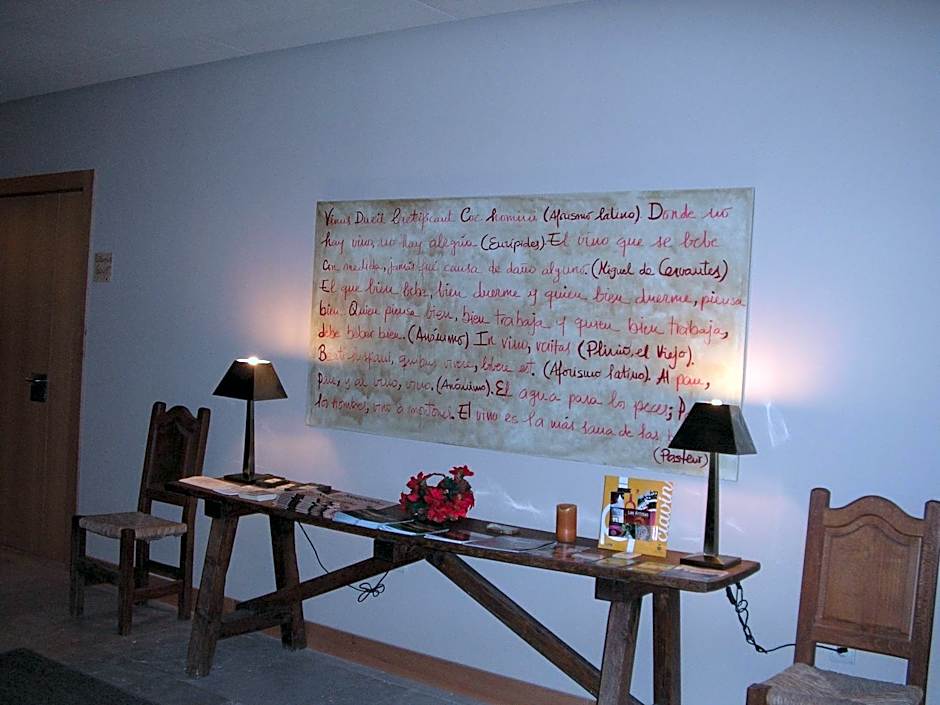 Vinus Dueil Letificant Coc homini (Aforismo latino). Donde no
hay vino, no hay alegría (Eurípides). El vino que se bebe
con medida, jamás fué causa de daño alguno. (Miguel de Cervantes)
El que bien bebe, bien duerme y quien bien duerme, piensa
bien. Quien piensa bien, bien trabaja y quien bien trabaja,
debe beber bien. (Anónimo) In vino, veritas (Plinio, el Viejo).
quibus vivere, bibere est. (Aforismo latino). Al pan,
pan, y al vino, vino. (Anónimo). El agua para los peces; P
los hombres, vino a montones. El vino es la más sana de las
(Pasteur)
clavin